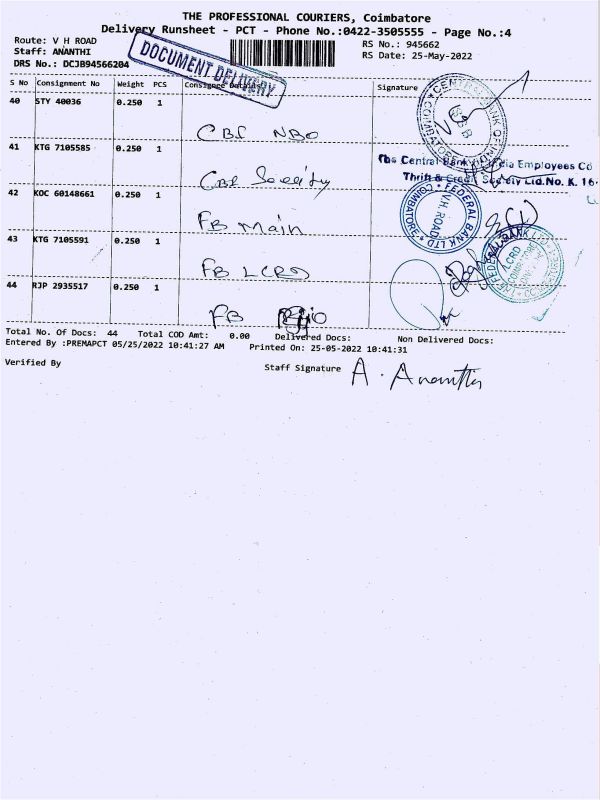 THE PROFESSIONAL COURIERS, Coimbatore
Delivery Runsheet - PCT - Phone No.:0422-3505555 - Page No.:4
Route: V H ROAD
RS No.: 945662
Staff: ANANTHI
RS Date: 25-May-2022
DRS No.: DCJB94566204
DOCUMENT DELIVERY
S No Consignment No Weight PCS Consignee Signature
40 STY 40036 0.250 1
CBI NBO
41 KTG 7105585 0.250 1
The Central Bank Employees Co
Thrift & Credit Society Ltd.No. K. 16
CBI Society
42 KOC 60148661 0.250 1
FEDERAL BANK LTD
V.H. ROAD
COIMBATORE
FB Main
43 KTG 7105591 0.250 1
LCRD
FB LCRD
44 RJP 2935517 0.250 1
FB
Total No. Of Docs: 44 Total COD Amt: 0.00 Delivered Docs: Non Delivered Docs:
Entered By :PREMAPCT 05/25/2022 10:41:27 AM Printed On: 25-05-2022 10:41:31
Verified By
Staff Signature A. Ananthi